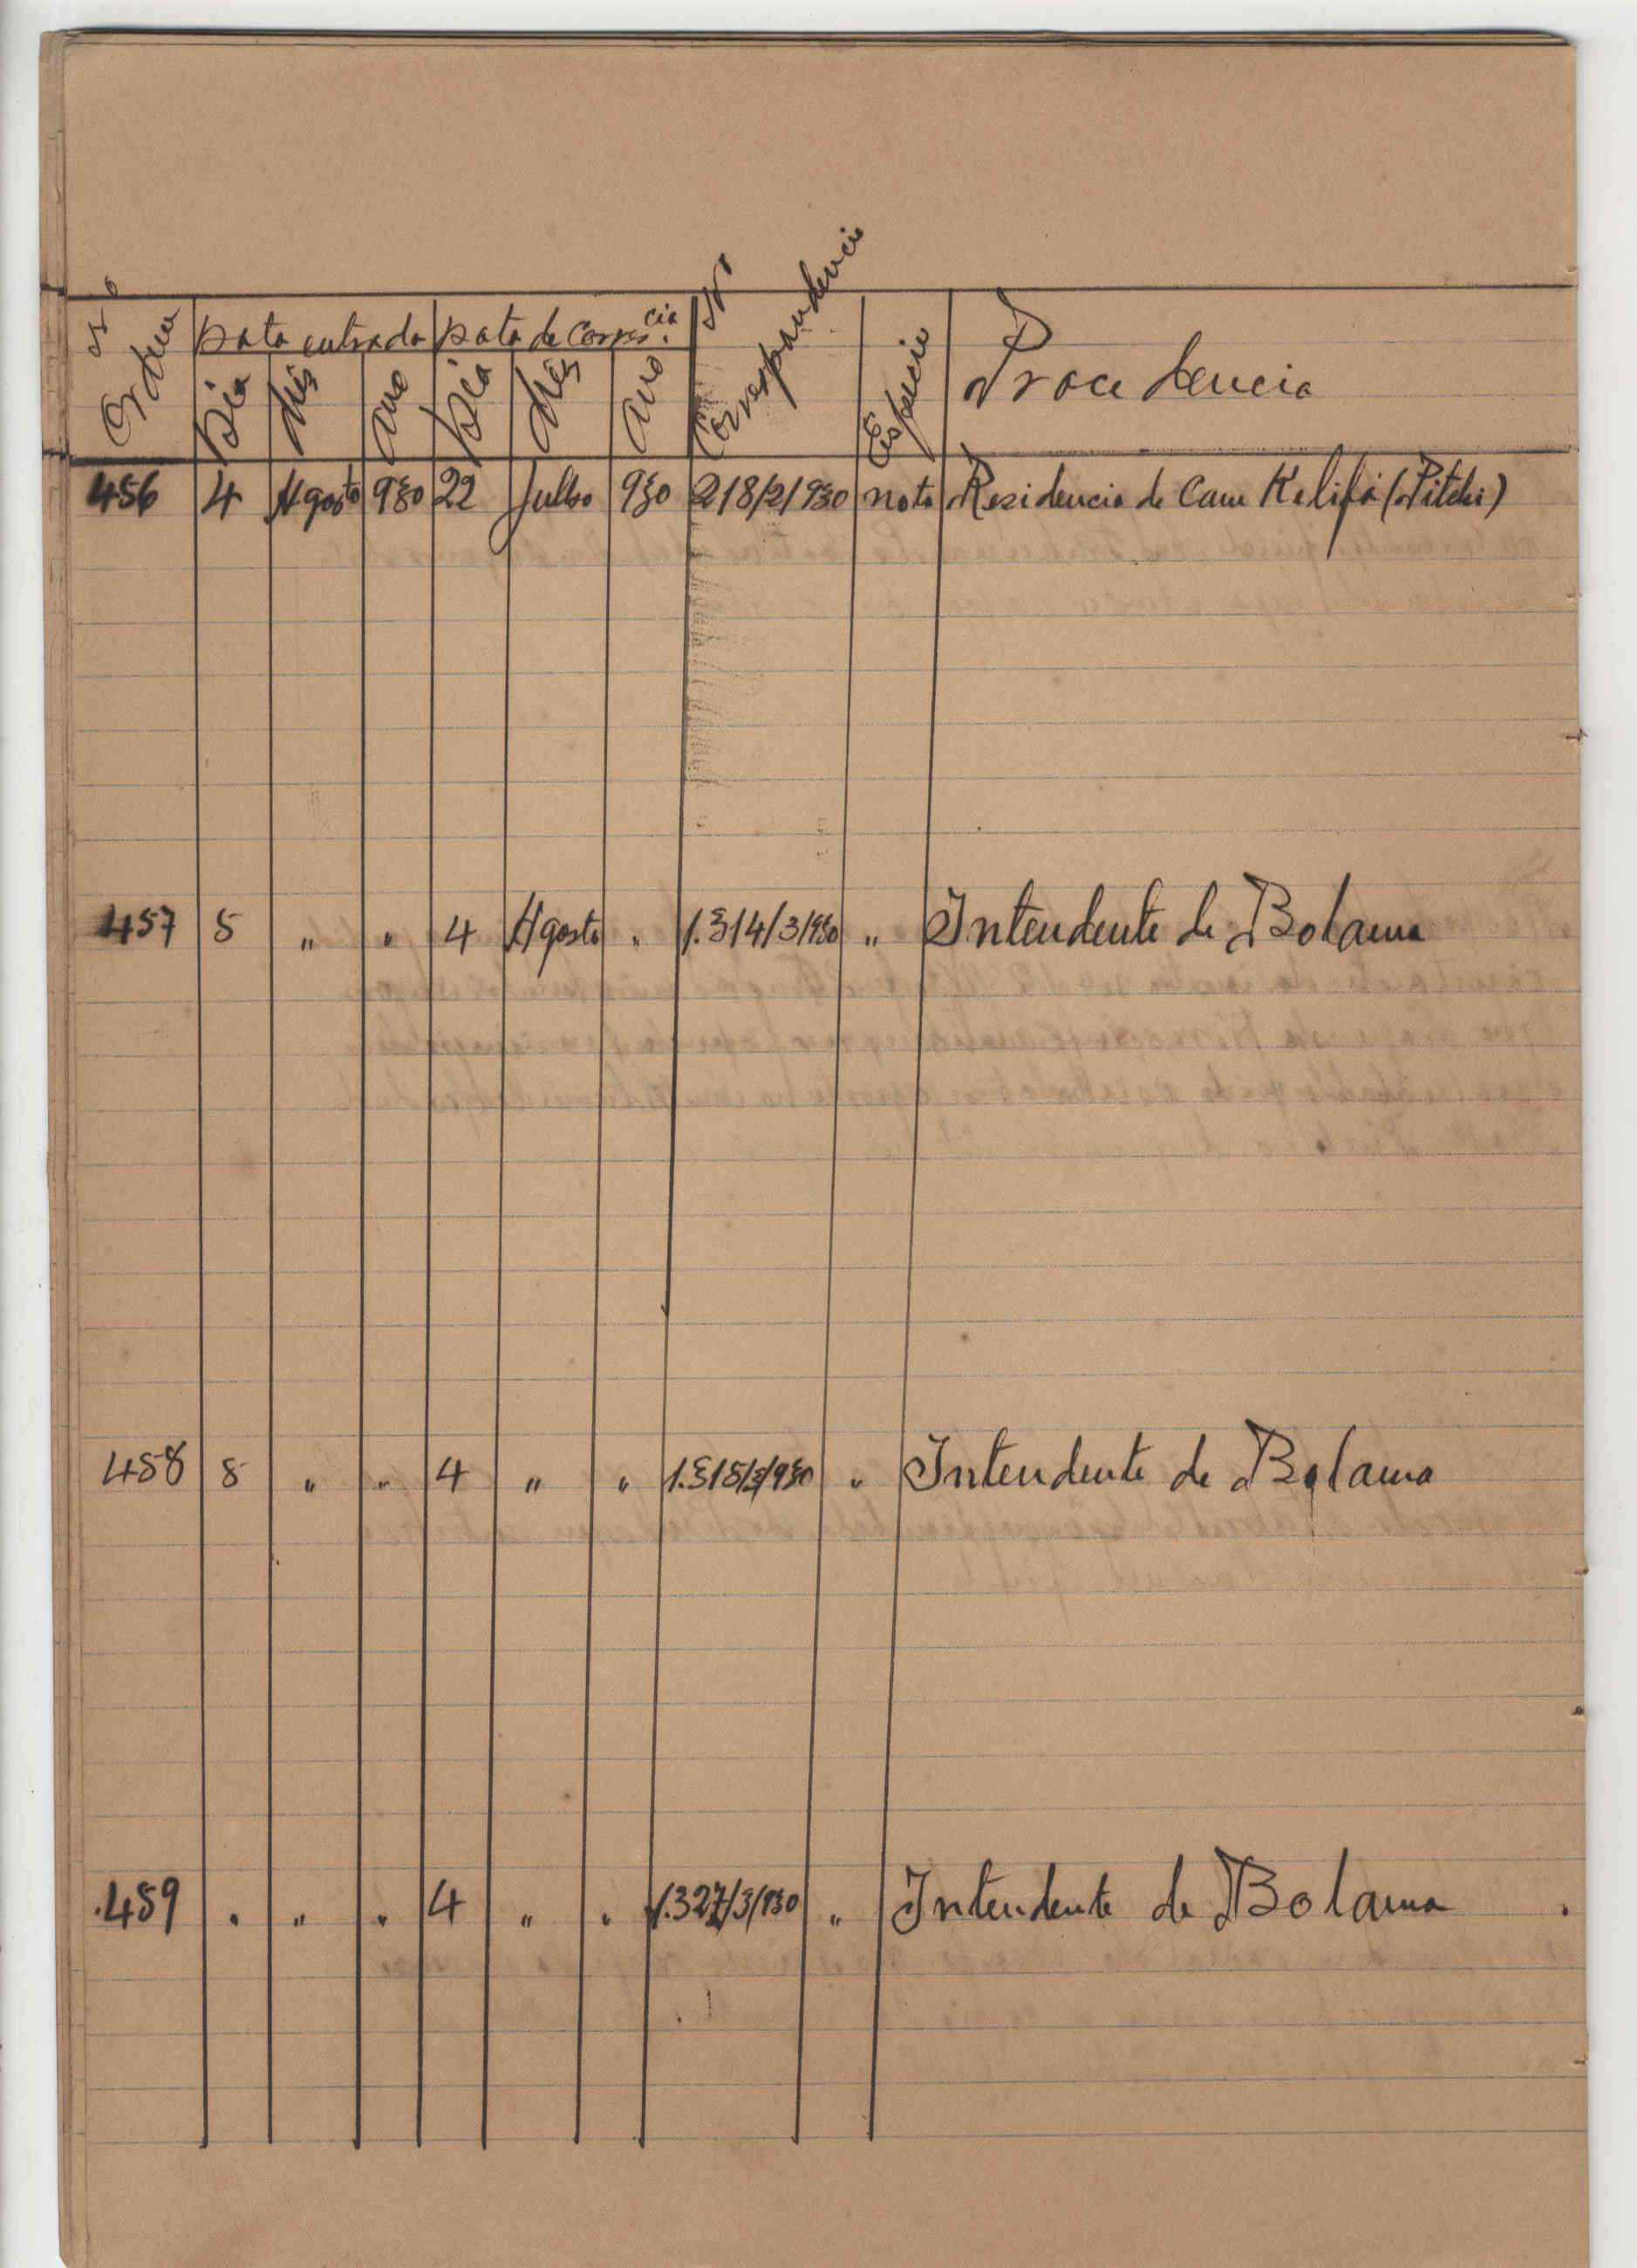 Nº Ordem Data entrada Data de Corres.cia Nº Correspondencia Especie Procedencia
Dia Mês Ano Dia Mês Ano
456 4 Agosto 930 22 Julho 930 218/2/930 nota Residencia de Cam Kelifá (Pitche)
457 5 " " 4 Agosto " 1.314/3/930 " Intendente de Bolama
458 5 " " 4 " " 1.315/3/930 " Intendente de Bolama
459 " " " 4 " " 1.327/3/930 " Intendente de Bolama